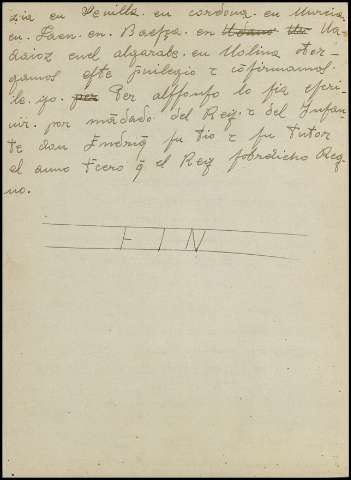 zia en Sevilla. en cordoua. en Murcia
en. Jaen. en. Baesça. en
daioz enel algarabe. en Molina otor-
gamos este puilegio τ cõfirmamos
lo. yo. Per alffonso lo fiz escri-
uir. por mãdado del Rey. τ del Infan-
te don Enrriq̃ su tio τ su tutor
el anno tcero q̃ el Rey sobredicho Reg-
no.
FIN